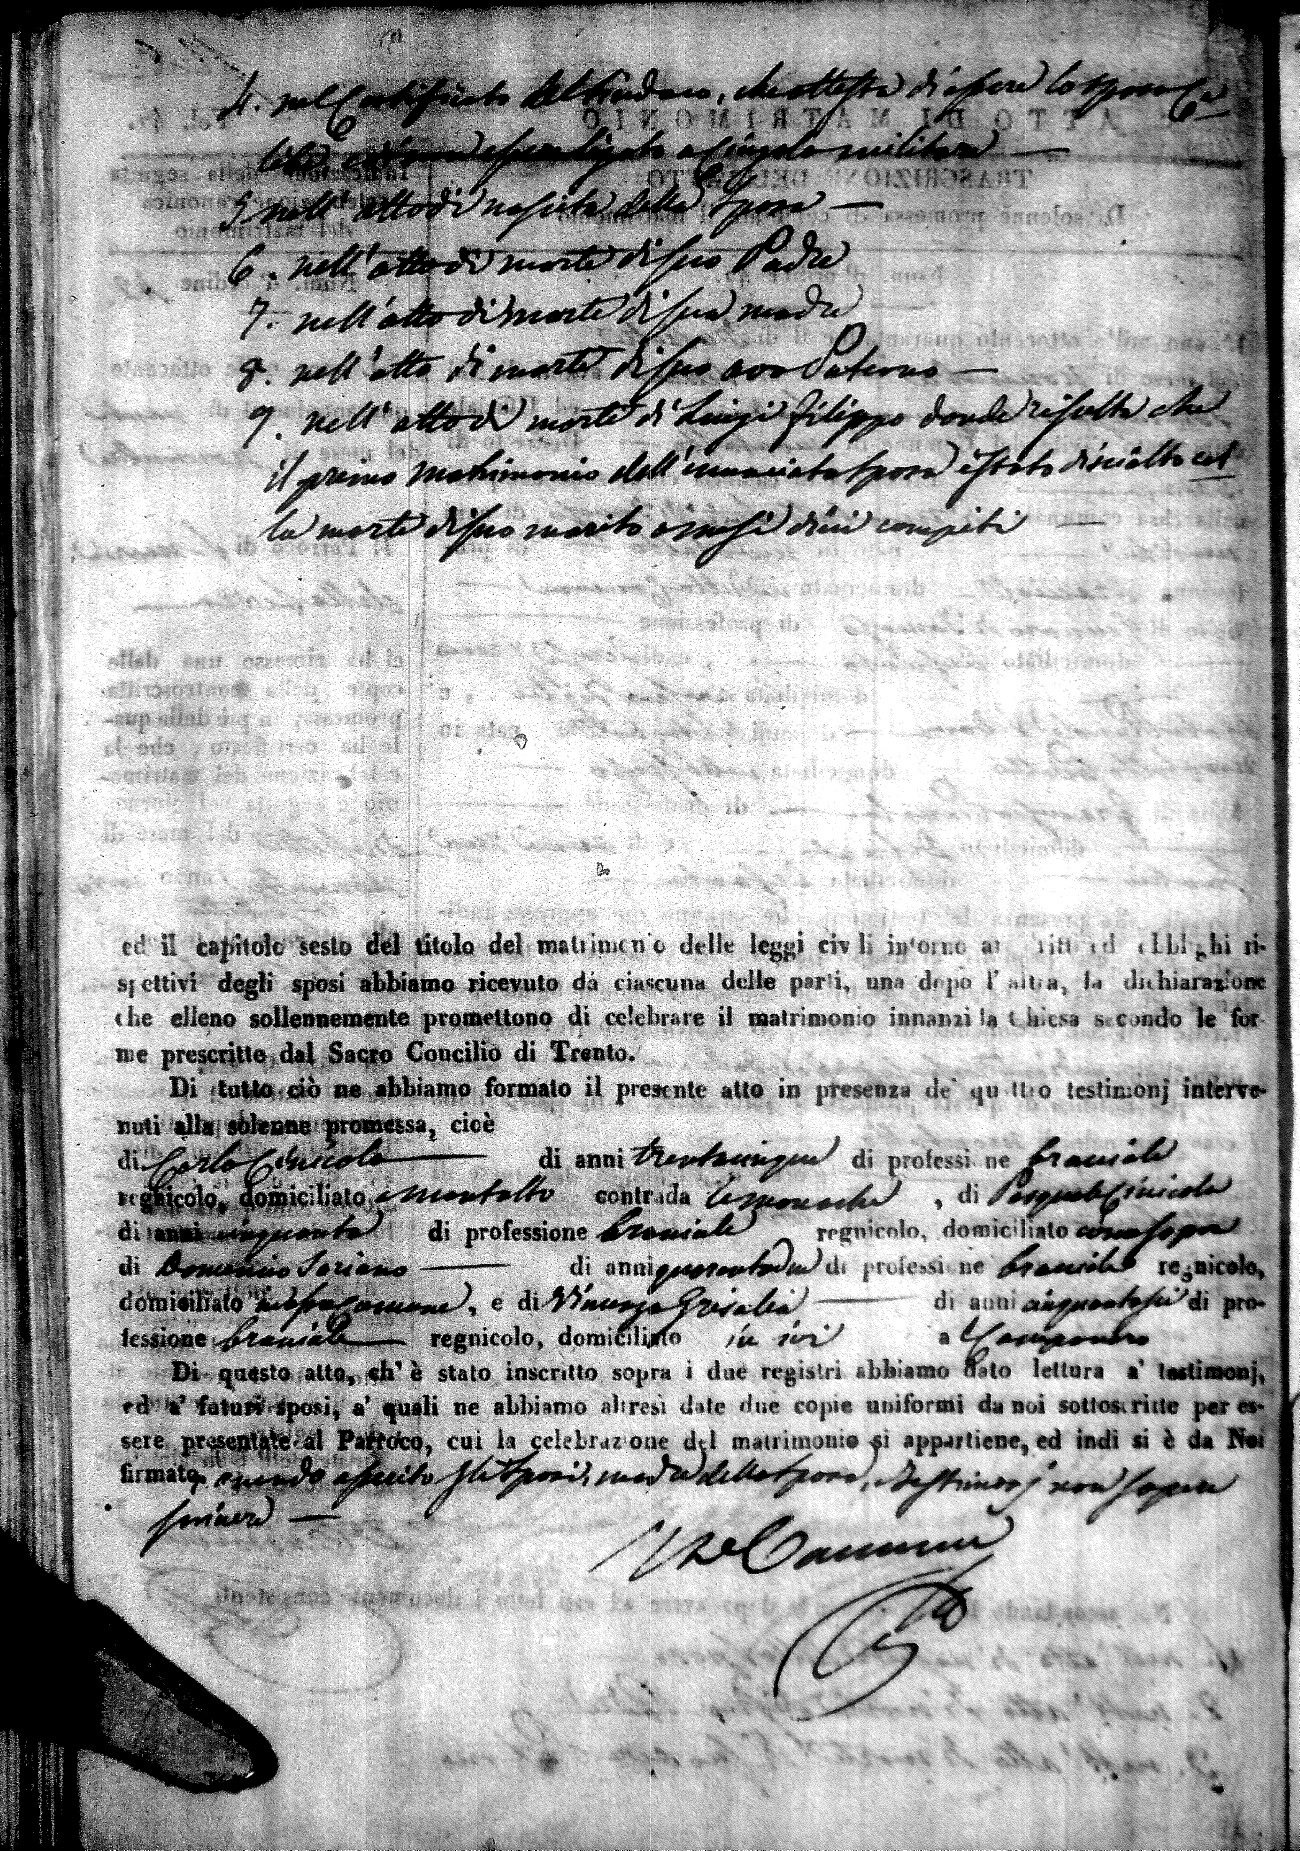 4. nel Certificato del Sindaco, che attesta di essere lo sposo Ce-
libe e non essere ligato a Cingolo militare —
5 nell'atto di nascita della Sposa —
6. nell'atto di morte di suo Padre
7. nell'atto di morte di sua madre
8. nell'atto di morte di suo avo Paterno —
9. nell'atto di morte di Luigi Filippo donde risulta che
il primo matrimonio dell'enunciata sposa è stato disciolto col
la morte di suo marito a mesi dieci compiti —
ed il capitolo sesto del titolo del matrimonio delle leggi civili intorno ai dritti ed obblighi ri-
spettivi degli sposi abbiamo ricevuto da ciascuna delle parti, una dopo l'altra, la dichiarazione
che elleno sollennemente promettono di celebrare il matrimonio innanzi la Chiesa secondo le for-
me prescritte dal Sacro Concilio di Trento.
Di tutto ciò ne abbiamo formato il presente atto in presenza de' quattro testimonj interve-
nuti alla solenne promessa, cioè
di Carlo Cinicola — di anni trentacinque di professione bracciale
regnicolo, domiciliato a Montalto contrada le monache, di Pasquale Cinicola
di anni cinquanta di professione bracciale regnicolo, domiciliato come sopra
di Domenico Soriano — di anni quarantadue di professione bracciale regnicolo,
domiciliato in questa Comune, e di Vincenzo Grisolia — di anni cinquantasei di pro-
fessione bracciale — regnicolo, domiciliato in ivi a
Di questo atto, ch' è stato inscritto sopra i due registri abbiamo dato lettura a' testimonj,
ed a' futuri sposi, a' quali ne abbiamo altresì date due copie uniformi da noi sottoscritte per es-
sere presentate al Parroco, cui la celebrazione del matrimonio si appartiene, ed indi si è da Noi
firmato, avendo asserito gli Sposi, madre della sposa, e testimonj non sapere
scrivere —